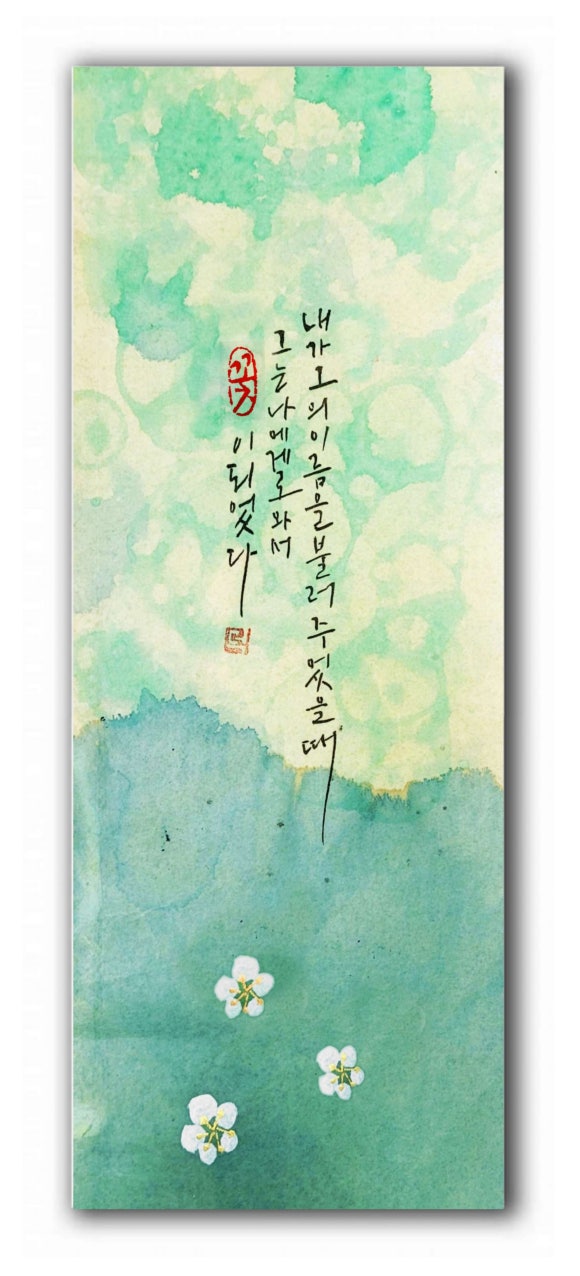 내가 그의 이름을 불러 주었을 때
그는 나에게로 와서
꽃이 되었다